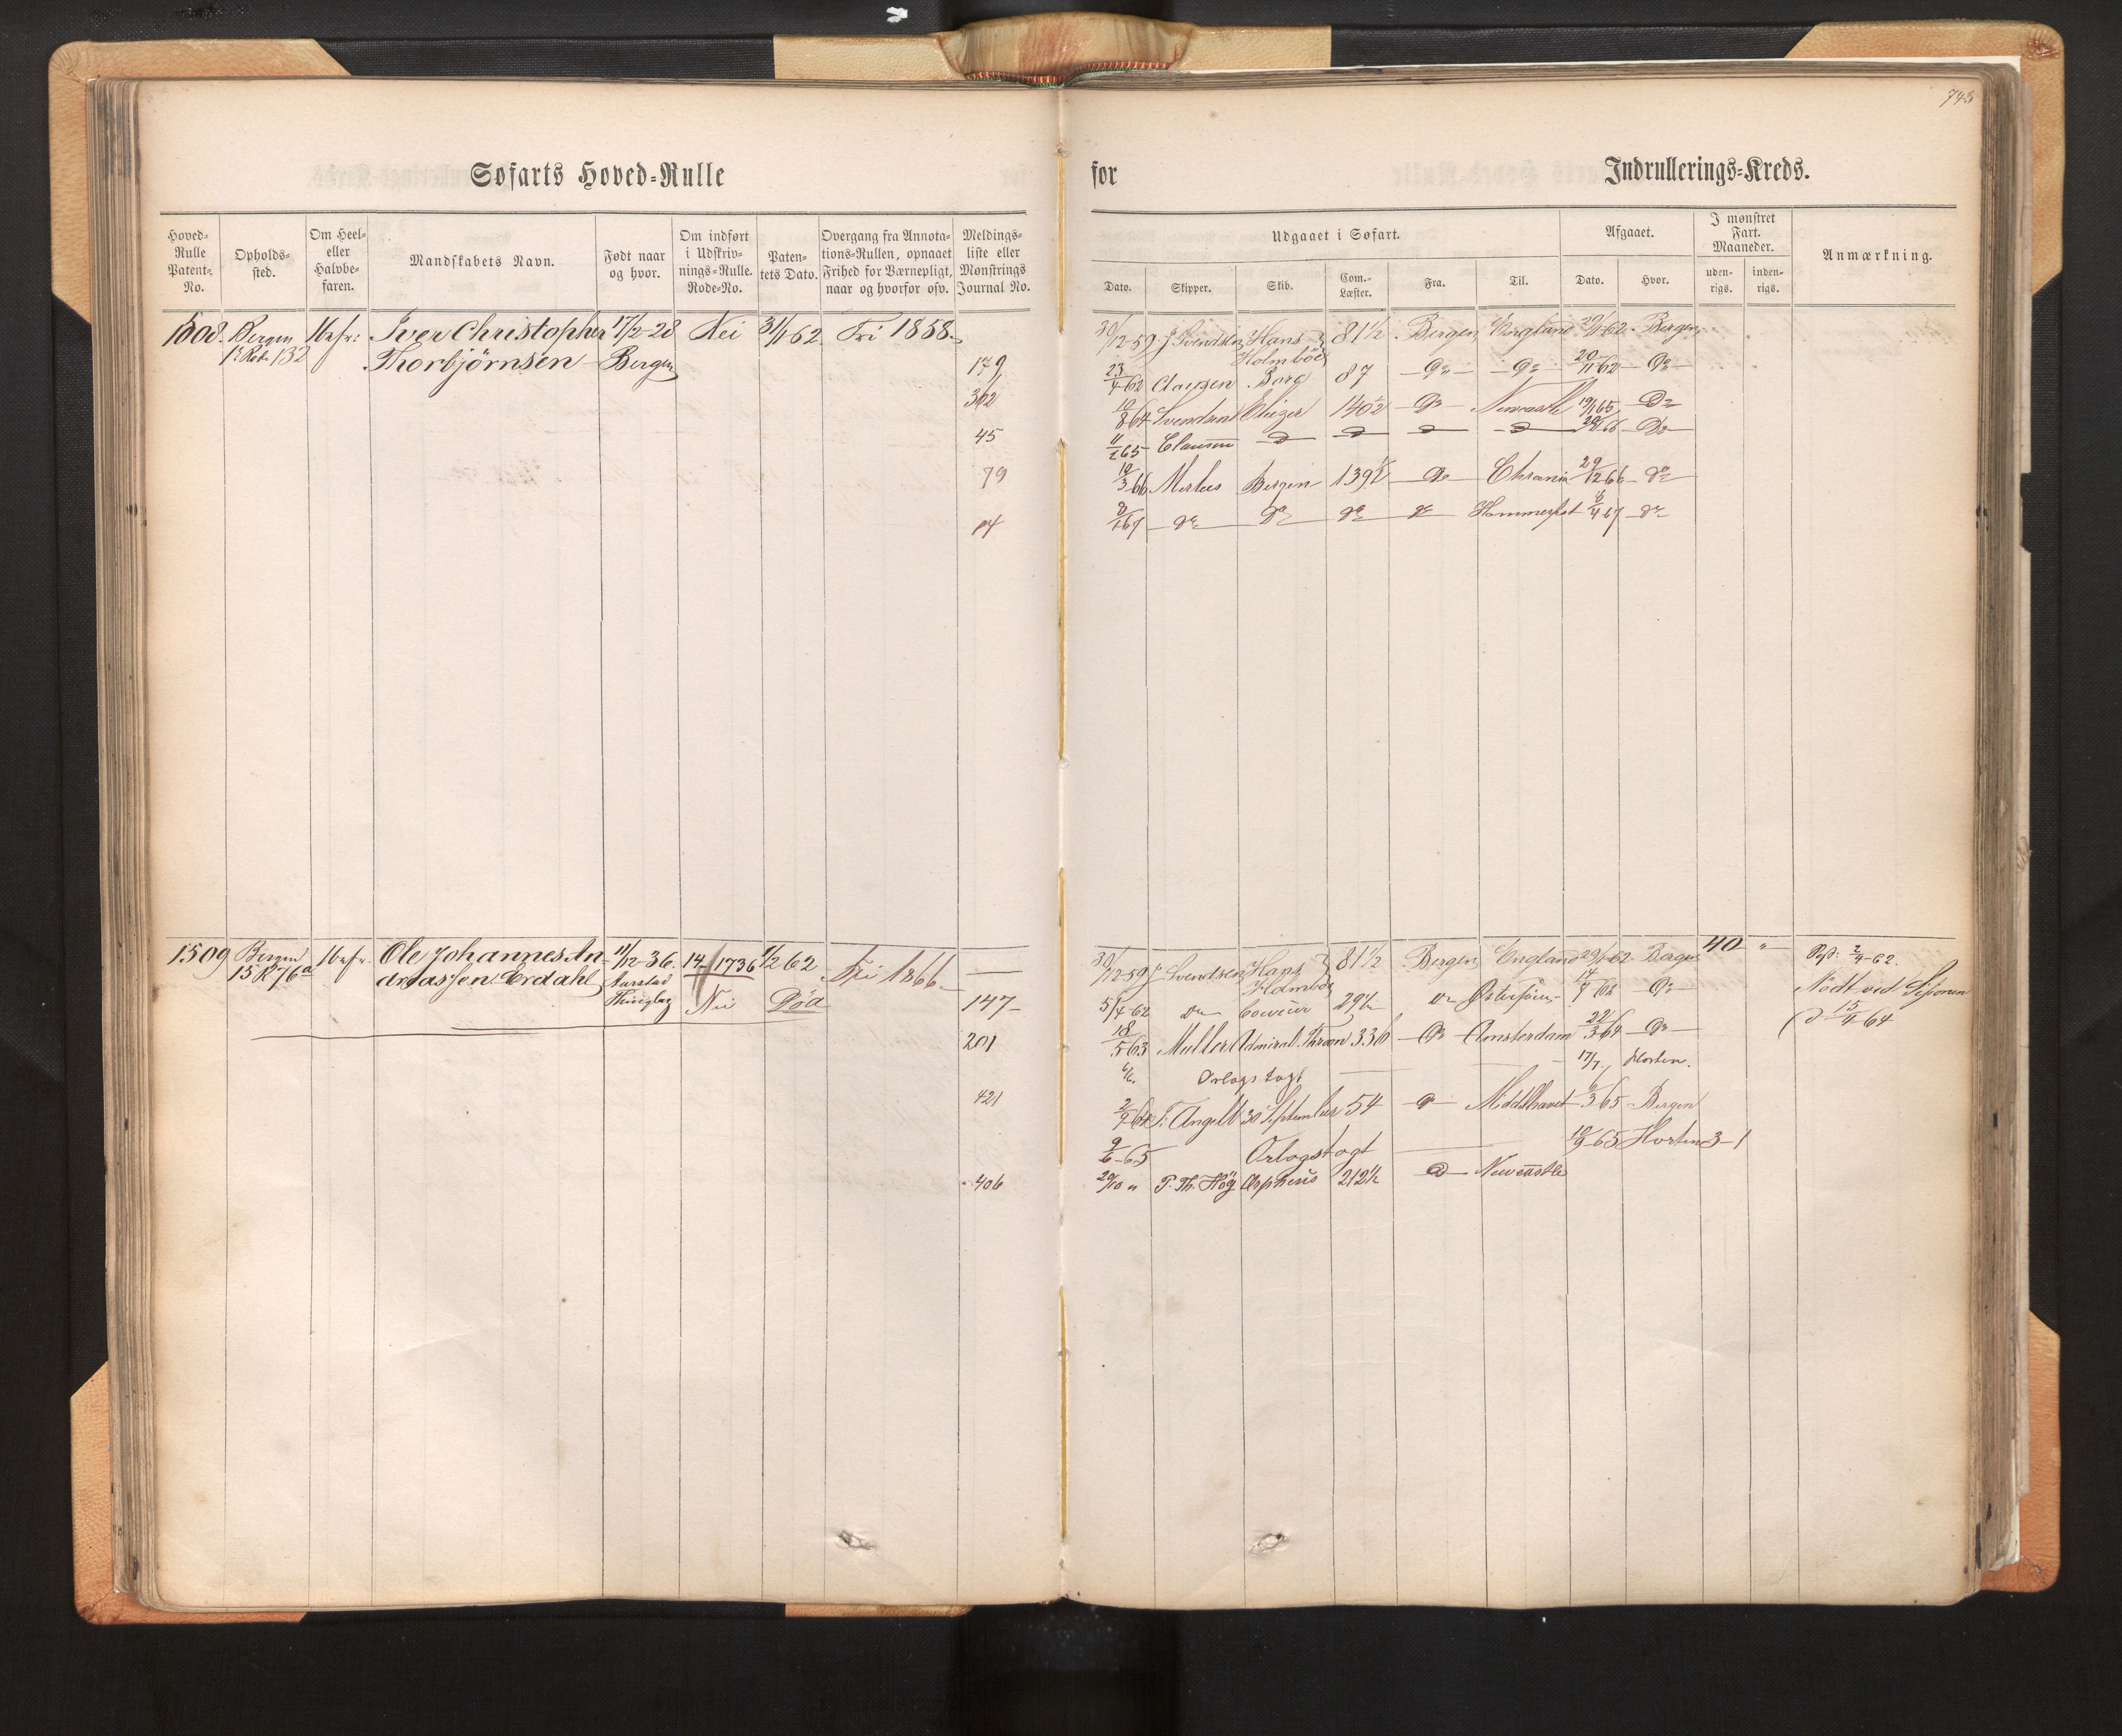 743
Søfarts Hoved-Rulle
for Indrullerings-Kreds.
Hoved-Rulle Patent-No.
Opholds-sted.
Om Heel- eller Halvbe-faren.
Mandskabets Navn.
Født naar og hvor.
Om indført i Udskriv-nings-Rulle. Rode-No.
Paten-tets Dato.
Overgang fra Annota-tions-Rullen, opnaaet Frihed for Værnepligt, naar og hvorfor osv.
Meldings-liste eller Mønstrings Journal No.
Udgaaet i Søfart.
Afgaaet.
I mønstret Fart. Maaneder.
Anmærkning.
Dato. Skipper. Skib. Com.-Læster. Fra. Til. Dato. Hvor. uden-rigs. inden-rigs.
1508. Bergen Iver Christopher 17/2-28 Nei 31/1 62 Fri 1858.
132 Thorbjørnsen Bergen
30/12-59 J Svendsen Hans Holmboe 81 1/2 Bergen England 29/1-62 Bergen
179 23/4-62 Clausen Borg 87 Do Do 20/11 62 Do
362 10/8 64 Svendsen Eliezer 140 1/2 Do Newcastle 19/1 65 Do
45 Clausen Do Do Do Do Do
79 12/3 66 Bergen 139 1/2 Do Chrania 29/12 66 Do
14 8/1 67 Do Do Do Do Hammerfest 6/4 67 Do
1509 Bergen Ole Johannes An- 11/12-36. 14 1736 1/2 62 Fri 1866
15 R 76a dreassen Erdahl Aarstad Nei Død
30/12-59 J Svendsen Hans Holmboe 81 1/2 Bergen England 29/1-62 Bergen 40 " 2/4-62.
147 5/4-62 Do Courier 29 1/2 Do Østersøen Do Mødt ved Sessionen
15/4 64
201 18/5 63 Muller Admiral Tharan 336 Do Amsterdam 22/3 64 Do
Orlogstogt 17/7 Horten.
421 Angell 30 September 54 Do Middelhavet 3 65 Bergen
9/6-65 Orlogstogt 19/9-65 Horten 3-1
406 29/10 " P. Th. Høg Orpheus 212 1/2 Do Newcastle